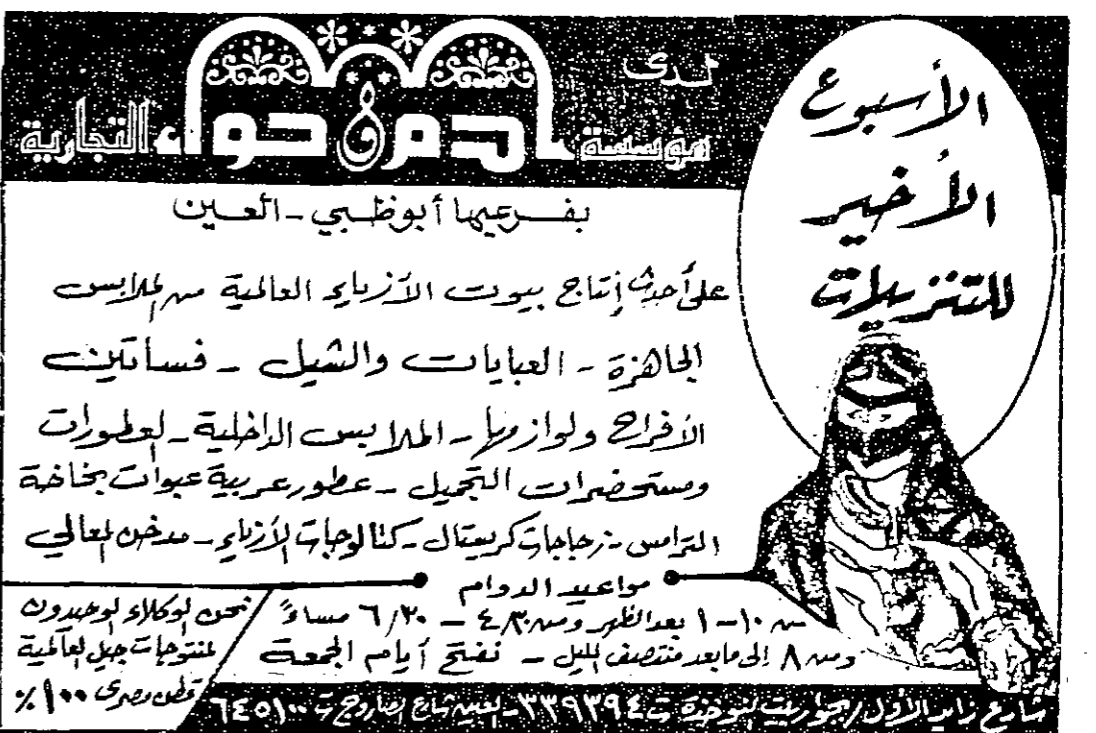 الأسبوع
الأخير
للتنزيلات
لدى
مؤسسة آدم و حواء التجارية
بفرعيها أبوظبي - العين
على أحدث إنتاج بيوت الأزياء العالمية من الملابس
الجاهزة - العبايات والشيل - فساتين
الأفراح ولوازمها - الملابس الداخلية - العطورات
ومستحضرات التجميل - عطور عربية عبوات بخاخة
الترامس - زجاجات كريستال - كتالوجات الأزياء - مدخن المعالي
مواعيد الدوام
من ١٠ - ١ بعد الظهر ومن ٤/٣٠ - ٦/٣٠ مساءً
ومن ٨ إلى ما بعد منتصف الليل - نفتح أيام الجمعة
نحن الوكلاء الوحيدون
لمنتوجات جيل العالمية
قطن مصري ١٠٠٪
شارع زايد الأول / بجوار ت ٣٣٩٣٩٤ - العين شارع ت ٦٤٥١٠٠